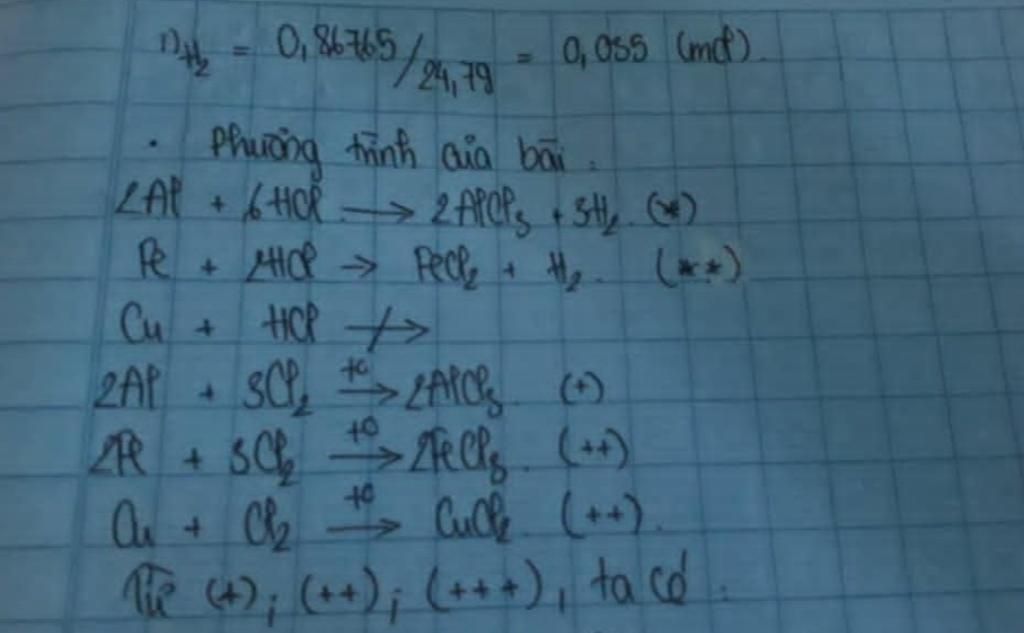 n_H₂ = 0,86765/24,79 = 0,035 (mol).
• Phương trình của bài:
2Al + 6HCl → 2AlCl₃ + 3H₂. (*)
Fe + 2HCl → FeCl₂ + H₂. (**)
Cu + HCl ↛
2Al + 3Cl₂ →(t°) 2AlCl₃. (+)
2Fe + 3Cl₂ →(t°) 2FeCl₃. (++)
Cu + Cl₂ →(t°) CuCl₂ (++).
Từ (+); (++); (+++), ta có: